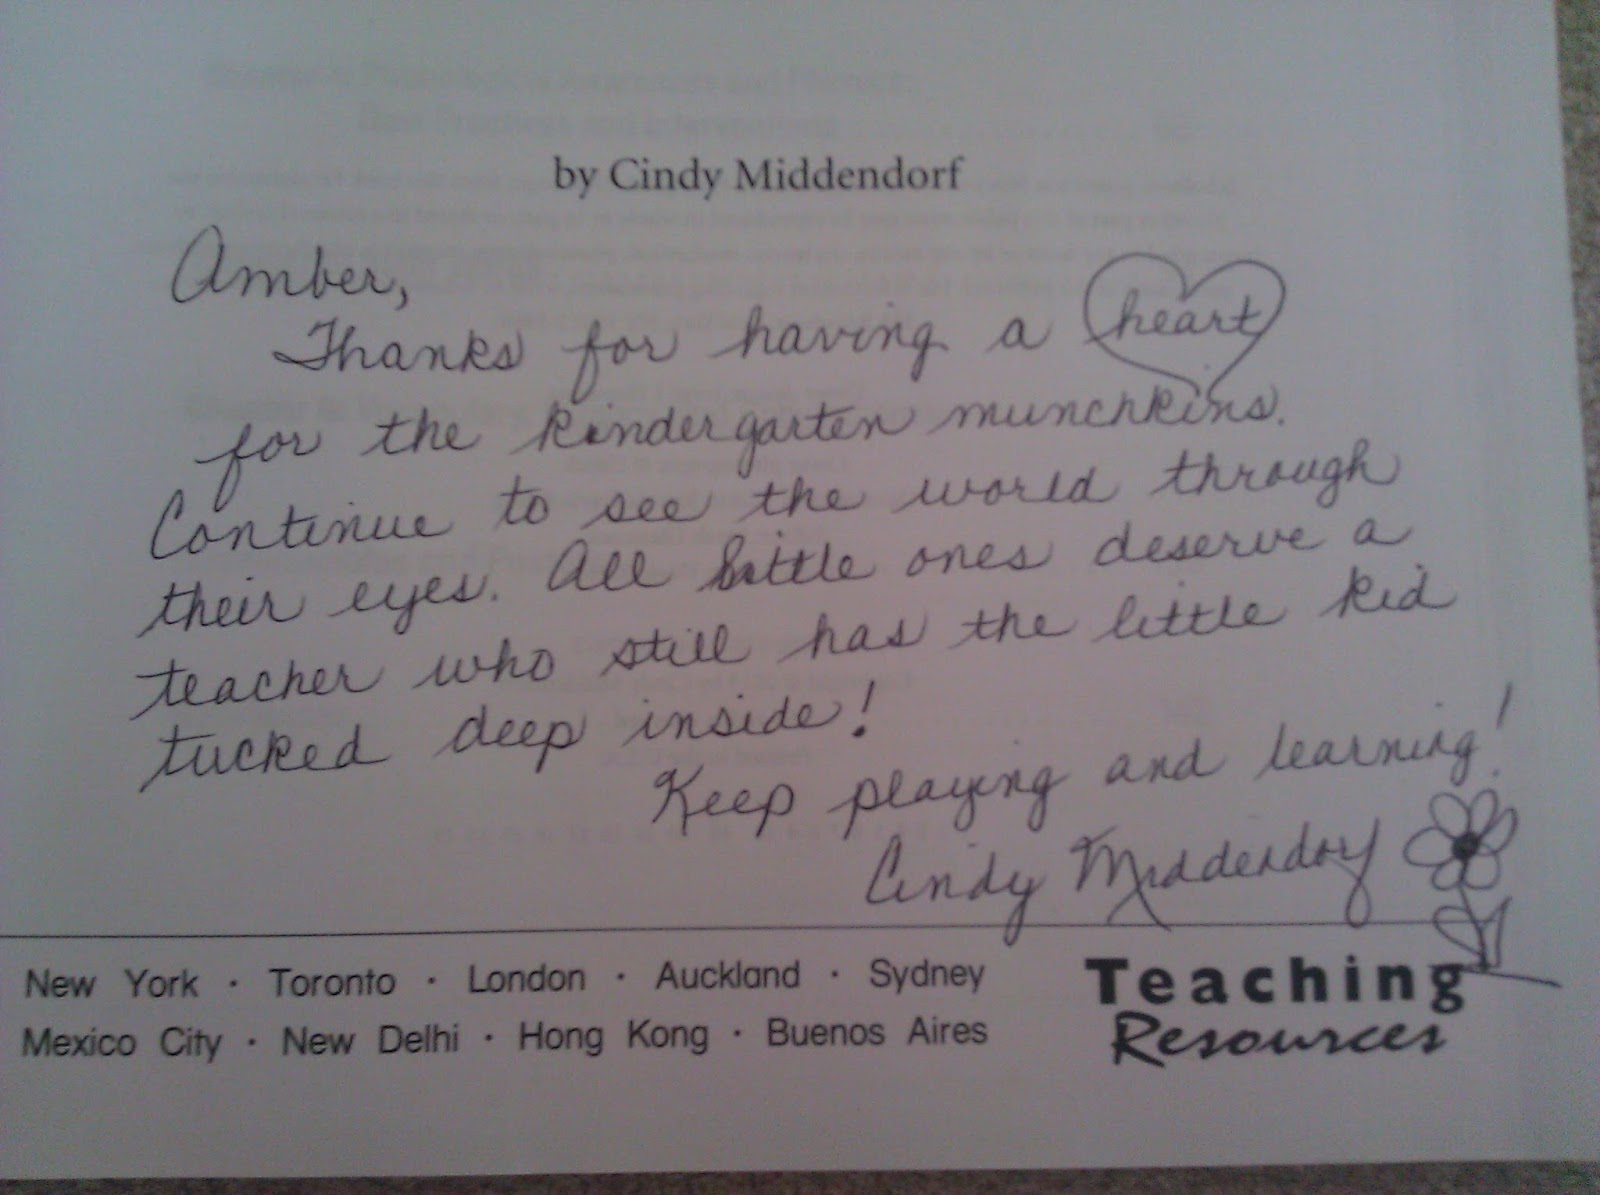 by Cindy Middendorf
Amber,
Thanks for having a heart
for the kindergarten munchkins.
Continue to see the world through
their eyes. All little ones deserve a
teacher who still has the little kid
tucked deep inside!
Keep playing and learning!
Cindy Middendorf
New York · Toronto · London · Auckland · Sydney
Mexico City · New Delhi · Hong Kong · Buenos Aires
Teaching
Resources